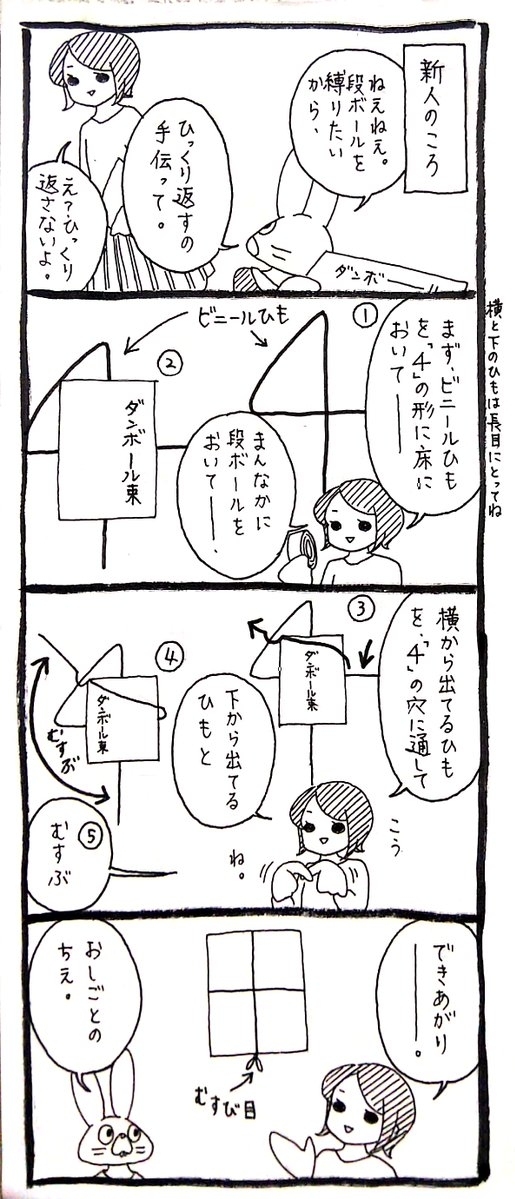 新人のころ
ねえねえ。
段ボールを
縛りたい
から、
ひっくり返すの
手伝って。
え？ひっくり
返さないよ。
ダンボ
①
まず、ビニールひも
を、「4」の形に床に
おいて――
横と下のひもは長目にとってね
ビニールひも
②
ダンボール束
まんなかに
段ボールを
おいて――、
③
横から出てるひも
を、「4」の穴に通して
ダンボール束
こう
ね。
④
下から出てる
ひもと
ダンボール束
むすぶ
⑤
むすぶ
できあがり
――。
むすび目
おしごとの
ちえ。